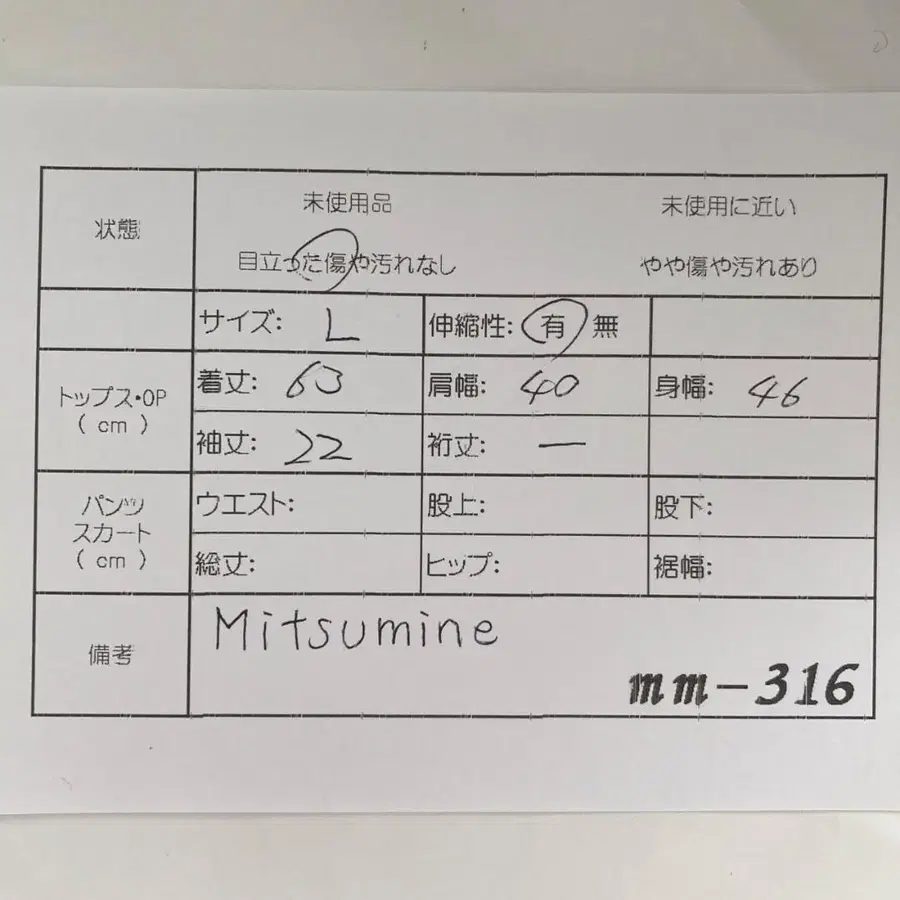 状態
未使用品 未使用に近い
目立った傷や汚れなし やや傷や汚れあり
サイズ: L 伸縮性: 有 無
トップス・OP
( cm )
着丈: 63 肩幅: 40 身幅: 46
袖丈: 22 裄丈: ー
パンツ
スカート
( cm )
ウエスト: 股上: 股下:
総丈: ヒップ: 裾幅:
備考
Mitsumine
mm-316